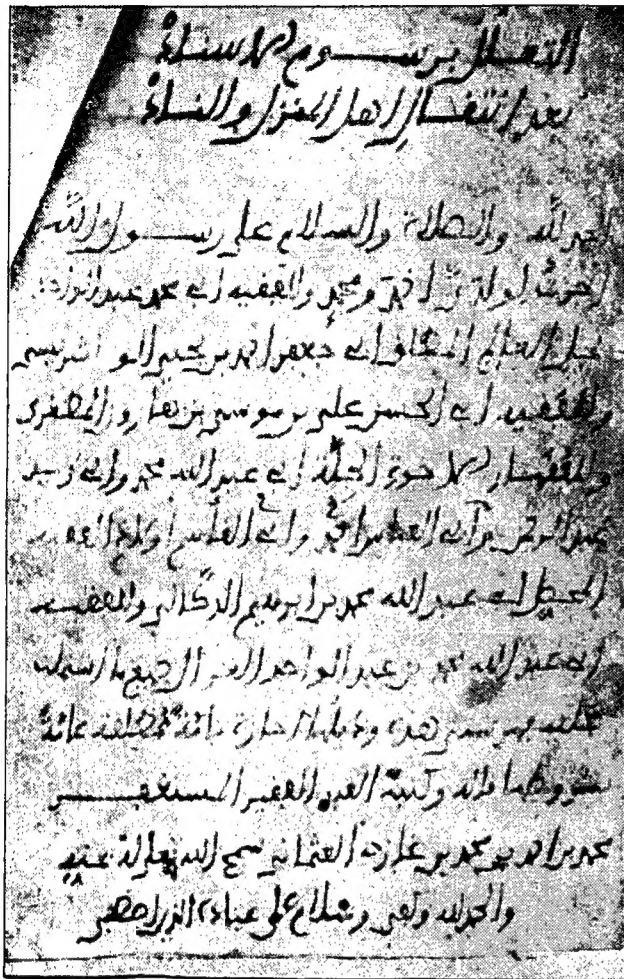 التعلل برسوم الاسناد
بعد انتقال اهل المنزل والناد
الحمد لله والصلاة والسلام على رسول الله
اجزت لولدي احمد ومحمد والفقيه ابي محمد عبد الواحد
نجل العالم ابي جعفر احمد بن يحيى الونشريسي
والفقيه ابي الحسن علي بن موسى بن هارون المطغري
الاخوة الجلة ابي عبد الله محمد وابي زيد
عبد الرحمن وابي العباس احمد وابي القاسم اولاد الفقيه
المحصل ابي عبد الله محمد بن ابراهيم الدكالي والفقيه
ابي عبد الله محمد بن عبد الواحد الغزال جميع ما اشتملت
عليه فهرستي هذه وذيلها اجازة تامة مطلقة عامة
بشروطها قاله وكتبه العبد الفقير المستغفر
محمد بن احمد بن محمد بن غازي العثماني سمح الله تعالى له بمنه
والحمد لله وكفى وسلام على عباده الذين اصطفى